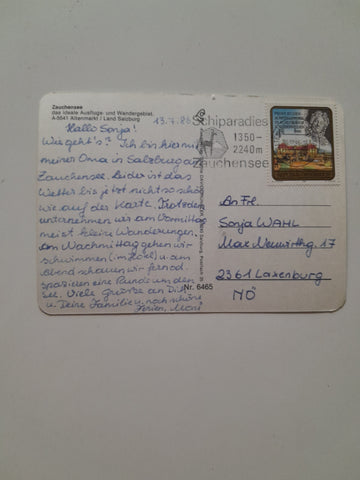 Zauchensee
das ideale Ausflugs- und Wandergebiet.
A-5541 Altenmarkt / Land Salzburg
13.7.88
Hallo Sonja!
Wie geht's? Ich bin hier mit
meiner Oma in Salzburg am
Zauchensee. Leider ist das
Wetter bis jetzt nicht so schön
wie auf der Karte. Trotzdem
unternehmen wir am Vormittag
meist kleine Wanderungen.
Am Nachmittag gehen wir
schwimmen (im Hotel) u. am
Abend schauen wir fern od.
spazieren eine Runde um den
See. Viele Grüße an Dich
u. Deine Familie u. noch schöne
Ferien, Moni
Nr. 6465
Schiparadies
1350-
2240m
Zauchensee
An Frl.
Sonja WAHL
Max Neuwirthg. 17
2361 Laxenburg
NÖ